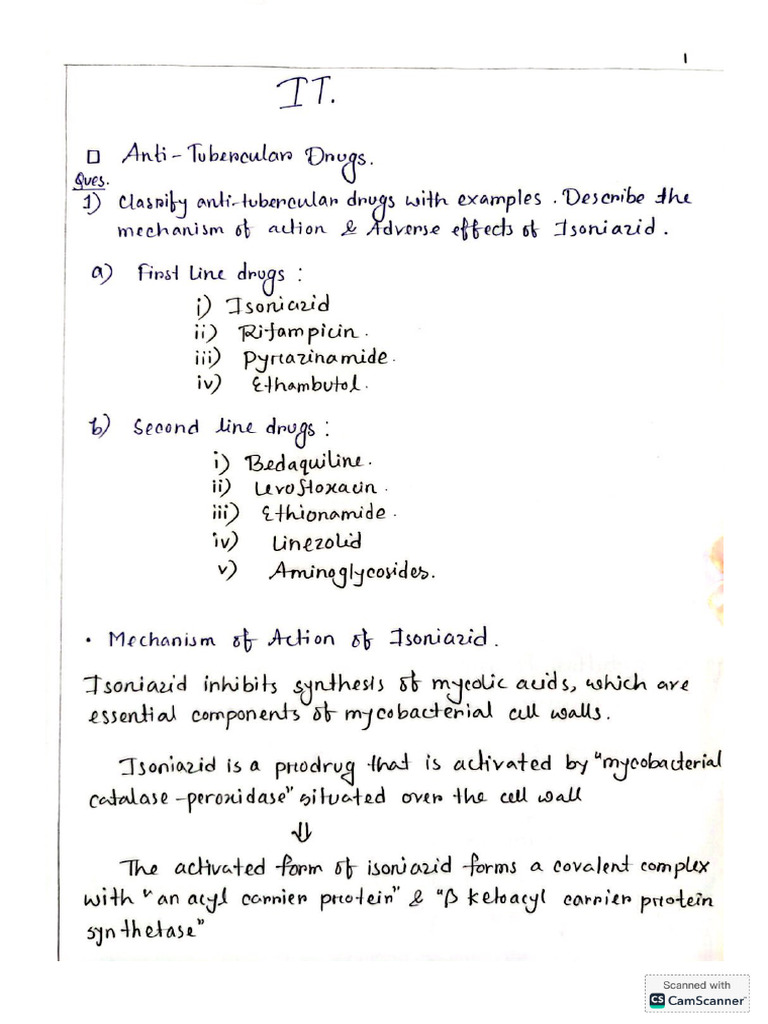 1
IT.
□ Anti-Tubercular Drugs.
Ques.
1) Classify anti-tubercular drugs with examples. Describe the
mechanism of action & Adverse effects of Isoniazid.
a) First Line drugs :
i) Isoniazid
ii) Rifampicin.
iii) Pyrazinamide.
iv) Ethambutol.
b) Second line drugs :
i) Bedaquiline.
ii) Levofloxacin.
iii) Ethionamide.
iv) Linezolid
v) Aminoglycosides.
• Mechanism of Action of Isoniazid.
Isoniazid inhibits synthesis of mycolic acids, which are
essential components of mycobacterial cell walls.
Isoniazid is a prodrug that is activated by "mycobacterial
catalase-peroxidase" situated over the cell wall
⇓
The activated form of isoniazid forms a covalent complex
with "an acyl carrier protein" & "β ketoacyl carrier protein
synthetase"
Scanned with
CS CamScanner